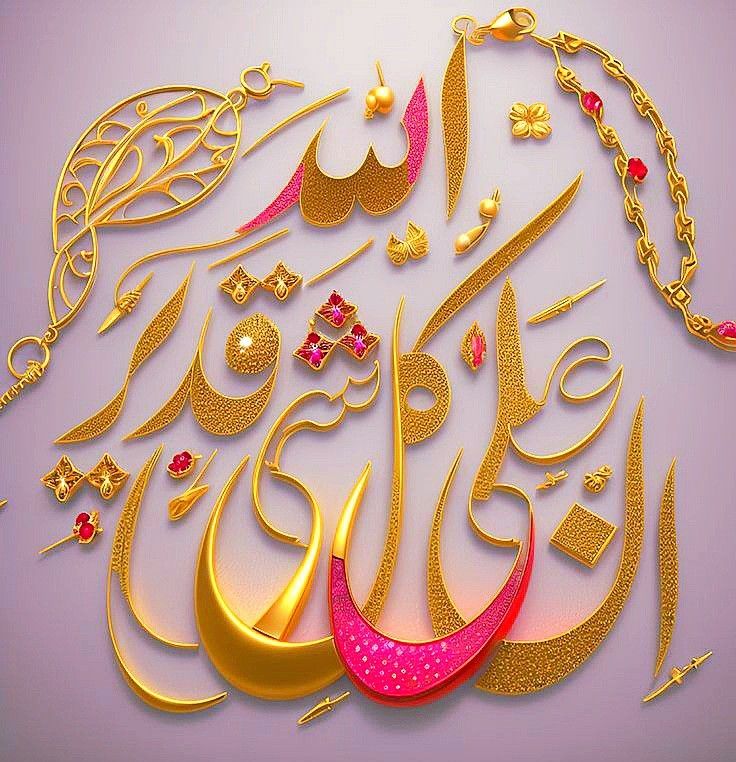 إن الله على كل شيء قدير